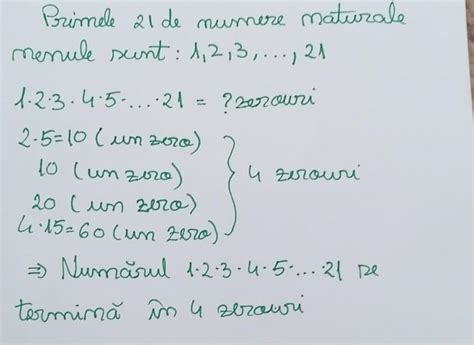 Primele 21 de numere naturale
nenule sunt: 1, 2, 3, ..., 21
1·2·3·4·5·...·21 = ? zerouri
2·5=10 (un zero)
10 (un zero)
20 (un zero)
4·15=60 (un zero)
} 4 zerouri
⇒ Numărul 1·2·3·4·5·...·21 se
termină în 4 zerouri